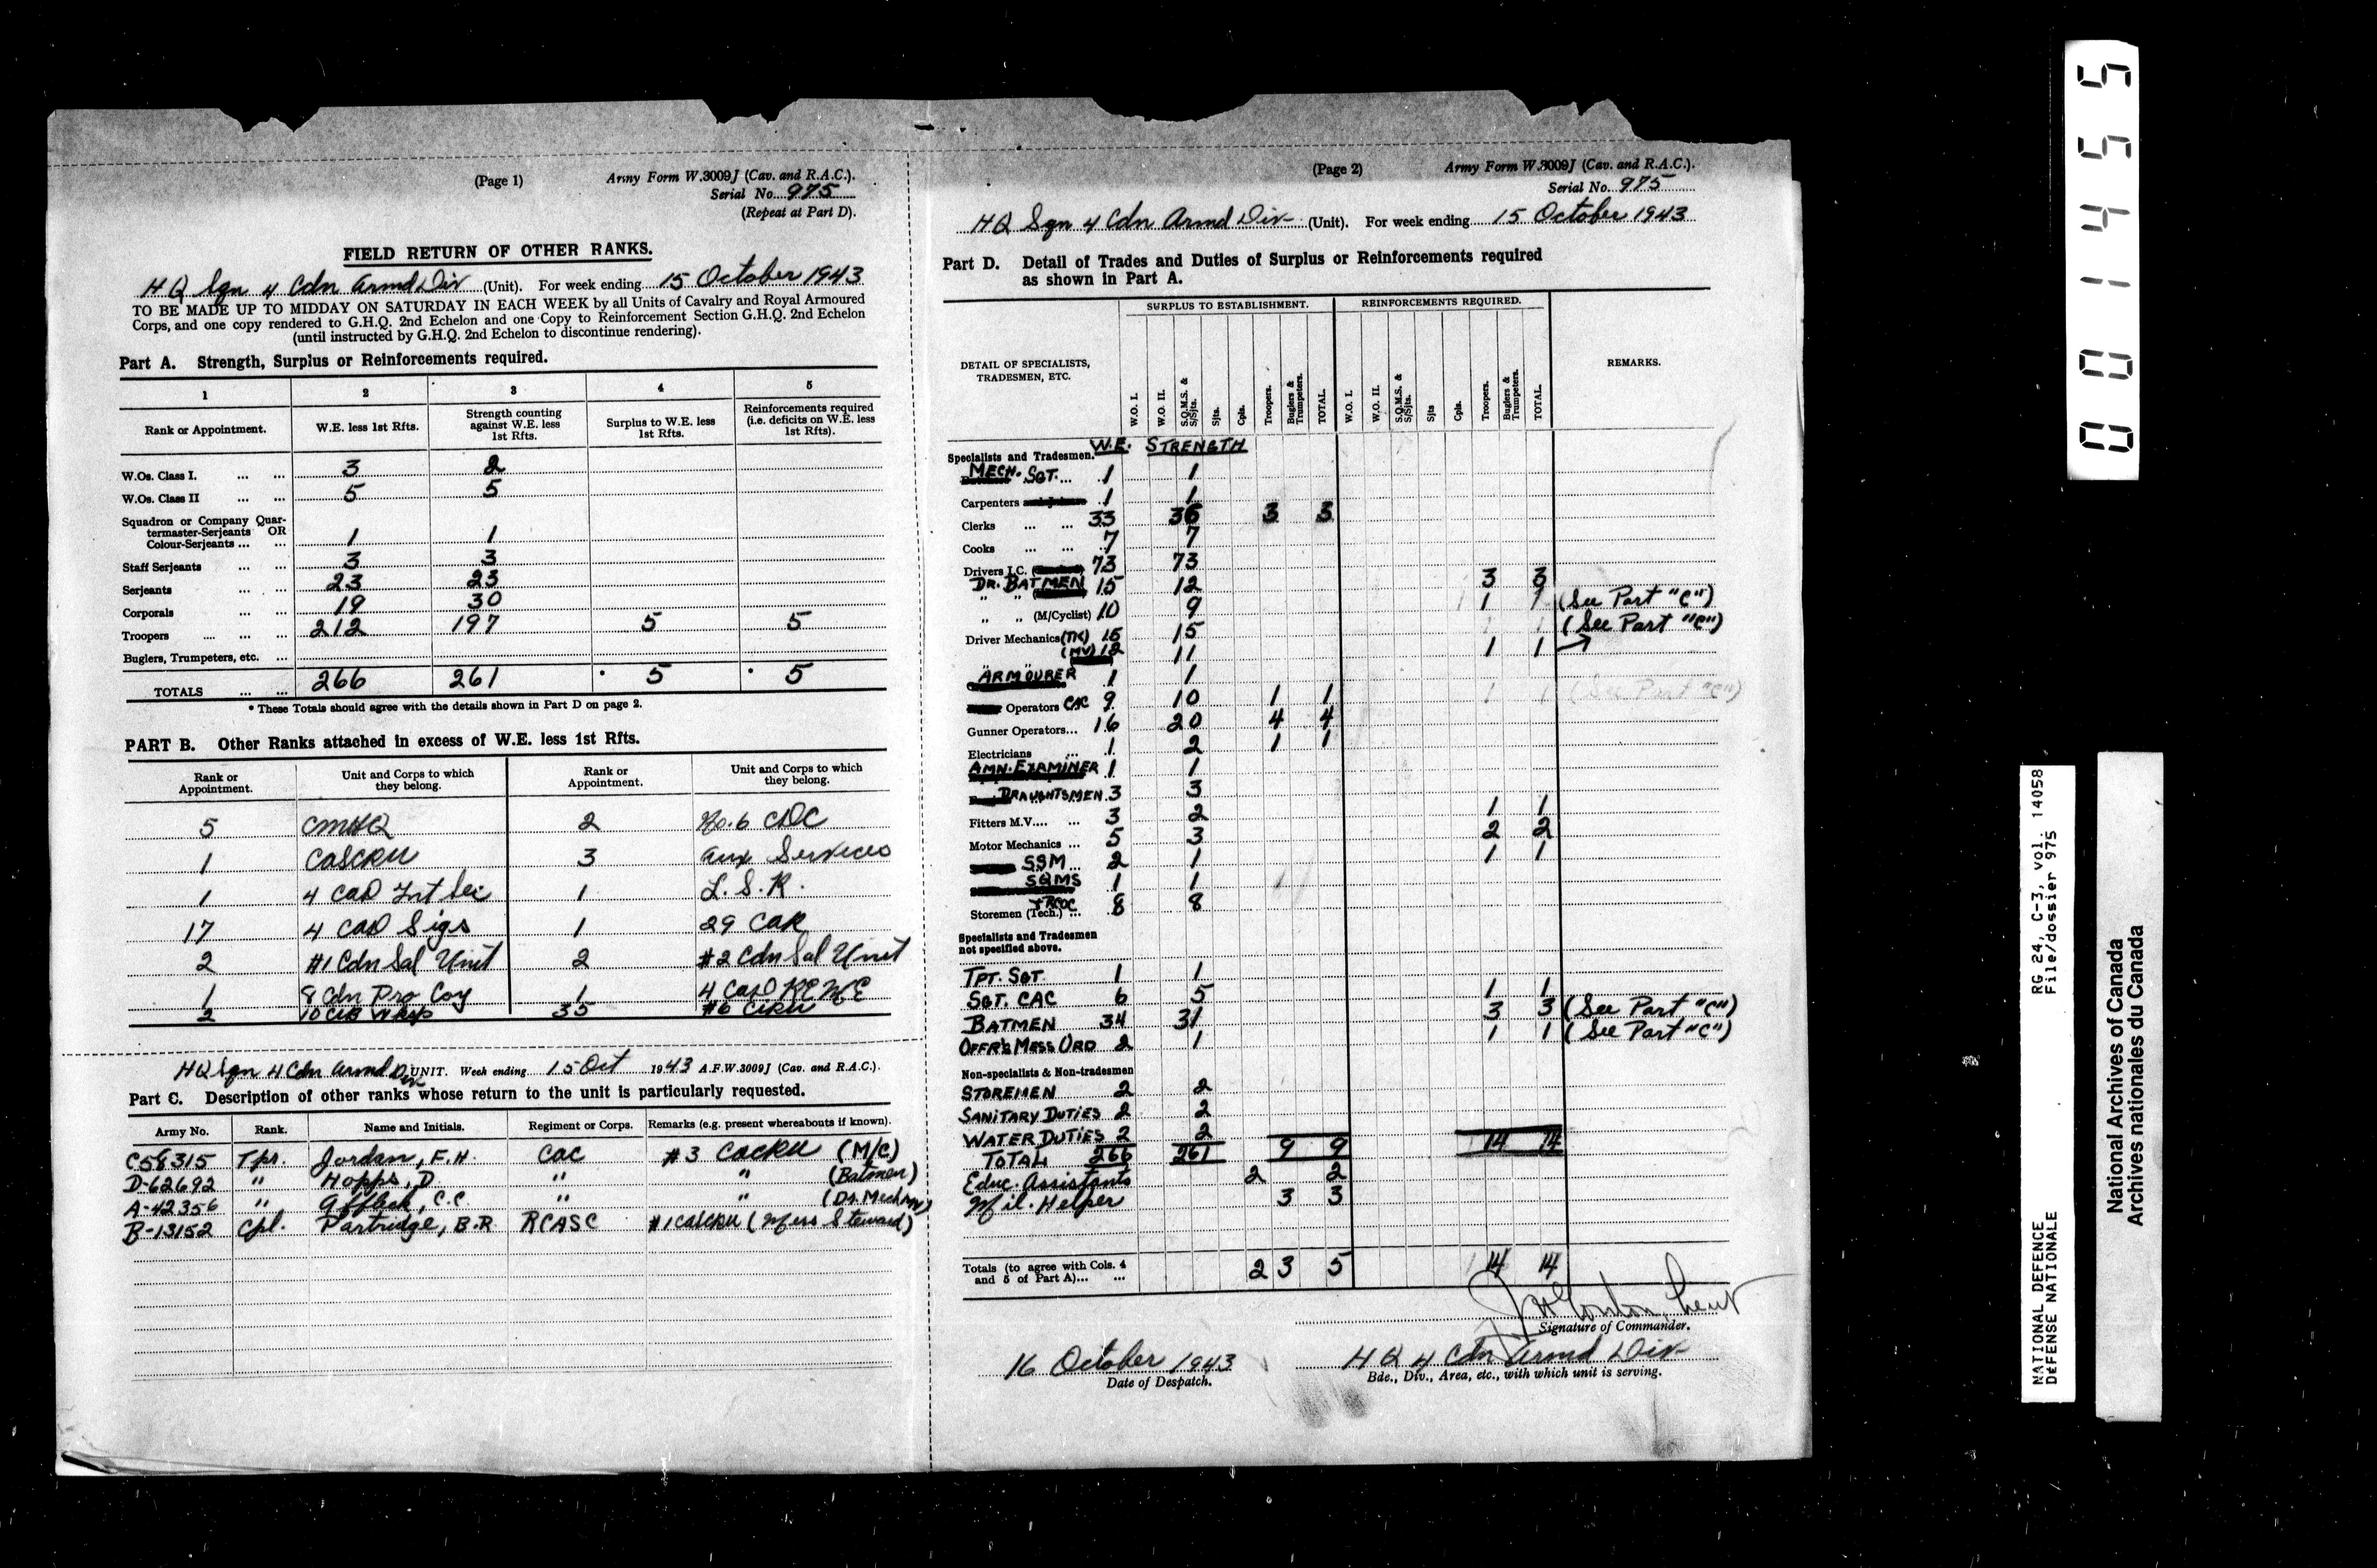 (Page 1)
Army Form W.3009J (Cav. and R.A.C.).
Serial No. 975
(Repeat at Part D).
FIELD RETURN OF OTHER RANKS.
HQ Sqn 4 Cdn Armd Div (Unit). For week ending 15 October 1943
TO BE MADE UP TO MIDDAY ON SATURDAY IN EACH WEEK by all Units of Cavalry and Royal Armoured
Corps, and one copy rendered to G.H.Q. 2nd Echelon and one Copy to Reinforcement Section G.H.Q. 2nd Echelon
(until instructed by G.H.Q. 2nd Echelon to discontinue rendering).
Part A. Strength, Surplus or Reinforcements required.
1 2 3 4 5
Rank or Appointment. W.E. less 1st Rfts. Strength counting against W.E. less 1st Rfts. Surplus to W.E. less 1st Rfts. Reinforcements required (i.e. deficits on W.E. less 1st Rfts).
W.Os. Class I. ... ... 3 2
W.Os. Class II ... ... 5 5
Squadron or Company Quar-
termaster-Serjeants OR
Colour-Serjeants ... ... 1 1
Staff Serjeants ... ... 3 3
Serjeants ... ... 23 23
Corporals ... ... 19 30
Troopers ... ... ... 212 197 5 5
Buglers, Trumpeters, etc. ...
TOTALS ... ... 266 261 * 5 * 5
* These Totals should agree with the details shown in Part D on page 2.
PART B. Other Ranks attached in excess of W.E. less 1st Rfts.
Rank or Appointment. Unit and Corps to which they belong. Rank or Appointment. Unit and Corps to which they belong.
5 CMHQ 2 No. 6 CDC
1 CASCRU 3 Aux Services
1 4 CAD Int Sec 1 L.S.R.
17 4 CAD Sigs 1 29 CAR
2 #1 Cdn Sal Unit 2 #2 Cdn Sal Unit
1 8 Cdn Pro Coy 1 4 CAD RCEME
2 10 CIB Wksp 35 #6 CIRU
HQ Sqn 4 Cdn Armd Div UNIT. Week ending 15 Oct 1943 A.F.W.3009J (Cav. and R.A.C.).
Part C. Description of other ranks whose return to the unit is particularly requested.
Army No. Rank. Name and Initials. Regiment or Corps. Remarks (e.g. present whereabouts if known).
C58315 Tpr. Jordan, F.H. CAC #3 CACRU (M/C)
D-62692 " Hopps, D. " " (Batmen)
A-42356 " Affleck, C.C. " "
B-13152 Cpl. Partridge, B.R. RCASC #1 CASCRU (Mess Steward)
(Page 2)
Army Form W.3009J (Cav. and R.A.C.).
Serial No. 975
HQ Sqn 4 Cdn Armd Div (Unit). For week ending 15 October 1943
Part D. Detail of Trades and Duties of Surplus or Reinforcements required
as shown in Part A.
DETAIL OF SPECIALISTS, TRADESMEN, ETC. SURPLUS TO ESTABLISHMENT. REINFORCEMENTS REQUIRED. REMARKS.
W.O. I. W.O. II. S.Q.M.S. & S/Sjts. Sjts. Cpls. Troopers. Buglers & Trumpeters. TOTAL. W.O. I. W.O. II. S.Q.M.S. & S/Sjts. Sjts Cpls. Troopers. Buglers & Trumpeters. TOTAL.
W.E. STRENGTH
Specialists and Tradesmen.
MECH. SGT. ... 1 1
Carpenters 1 1
Clerks ... ... 33 36 3 3
Cooks ... ... 7 7
Drivers I.C. 73 73
DR. BATMEN 15 12 3 3
" " (M/Cyclist) 10 9 1 1 (See Part "C")
Driver Mechanics (TK) 15 15 (See Part "C")
(MV) 12 11 1 1
ARMOURER 1 1
Operators CAC 9 10 1 1 (See Part "C")
Gunner Operators... 16 20 4 4
Electricians ... 1 2 1 1
AMN. EXAMINER 1 1
DRAUGHTSMEN 3 3
Fitters M.V.... ... 3 2 1 1
Motor Mechanics ... 5 3 2 2
SSM ... 2 1 1 1
SQMS 1 1
Storemen (Tech.) RCOC ... 8 8
Specialists and Tradesmen
not specified above.
TPT. SGT. 1 1
SGT. CAC 6 5 1 1
BATMEN 34 31 3 3 (See Part "C")
OFFR'S MESS ORD 2 1 1 1 (See Part "C")
Non-specialists & Non-tradesmen
STOREMEN 2 2
SANITARY DUTIES 2 2
WATER DUTIES 2 2
TOTAL 266 261 9 9 14 14
Educ. Assistants 2 2
Mil. Helper 3 3
Totals (to agree with Cols. 4
and 5 of Part A)... ... 2 3 5 14 14
Gordon Lieut
Signature of Commander.
16 October 1943
Date of Despatch.
HQ 4 Cdn Armd Div
Bde., Div., Area, etc., with which unit is serving.
001455
RG 24, C-3, vol. 14058
File/dossier 975
NATIONAL DEFENCE
DEFENSE NATIONALE
National Archives of Canada
Archives nationales du Canada